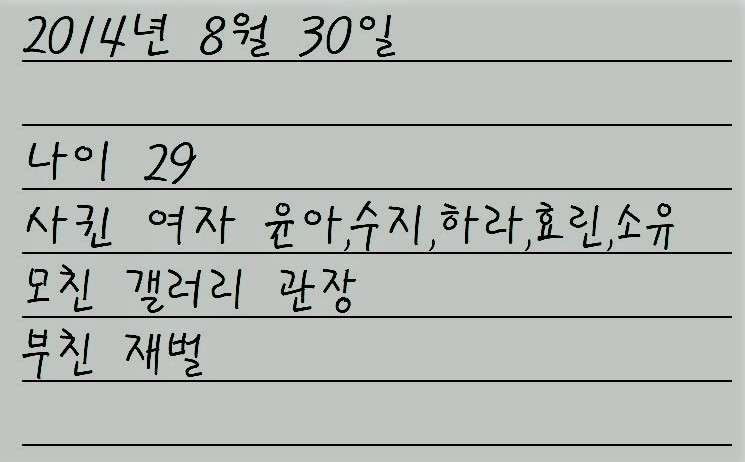 2014년 8월 30일
나이 29
사귄 여자 윤아,수지,하라,효린,소유
모친 갤러리 관장
부친 재벌